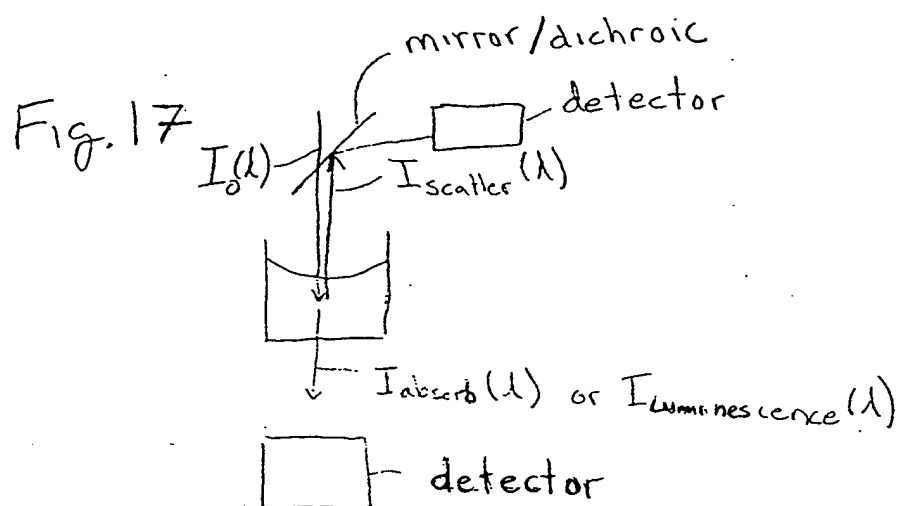 mirror/dichroic
Fig. 17
detector
I₀(λ)
I scatter (λ)
I absorb (λ) or I Luminescence (λ)
detector